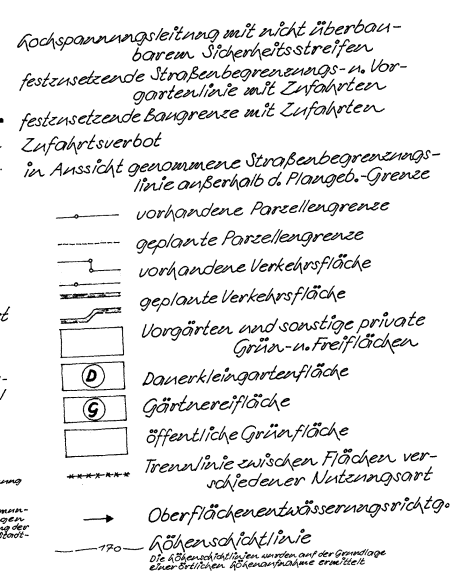 Hochspannungsleitung mit nicht überbau-
barem Sicherheitsstreifen
festzusetzende Straßenbegrenzungs- u. Vor-
gartenlinie mit Zufahrten
festzusetzende Baugrenze mit Zufahrten
Zufahrtsverbot
in Aussicht genommene Straßenbegrenzungs-
linie außerhalb d. Plangeb.-Grenze
vorhandene Parzellengrenze
geplante Parzellengrenze
vorhandene Verkehrsfläche
geplante Verkehrsfläche
Vorgärten und sonstige private
Grün- u. Freiflächen
D Dauerkleingartenfläche
G Gärtnereifläche
öffentliche Grünfläche
Trennlinie zwischen Flächen ver-
schiedener Nutzungsart
Oberflächenentwässerungsrichtg.
170 Höhenschichtlinie
Die Höhenschichtlinien wurden auf der Grundlage
einer örtlichen Höhenaufnahme ermittelt